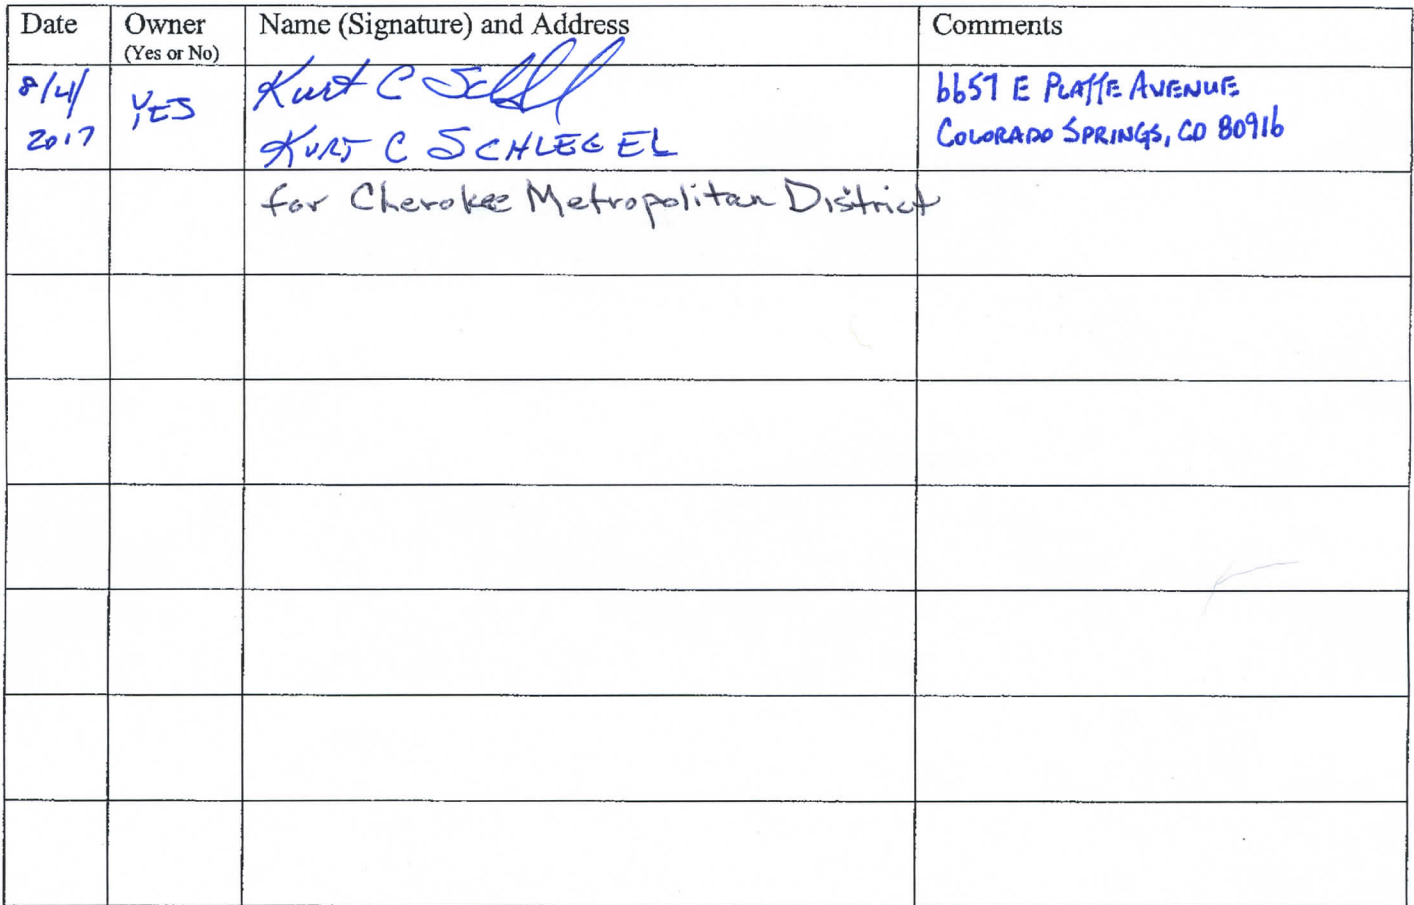 Date Owner Name (Signature) and Address Comments
(Yes or No)
8/4/
2017
YES
Kurt C
KURT C SCHLEGEL
6657 E PLATTE AVENUE
COLORADO SPRINGS, CO 80916
for Cherokee Metropolitan District